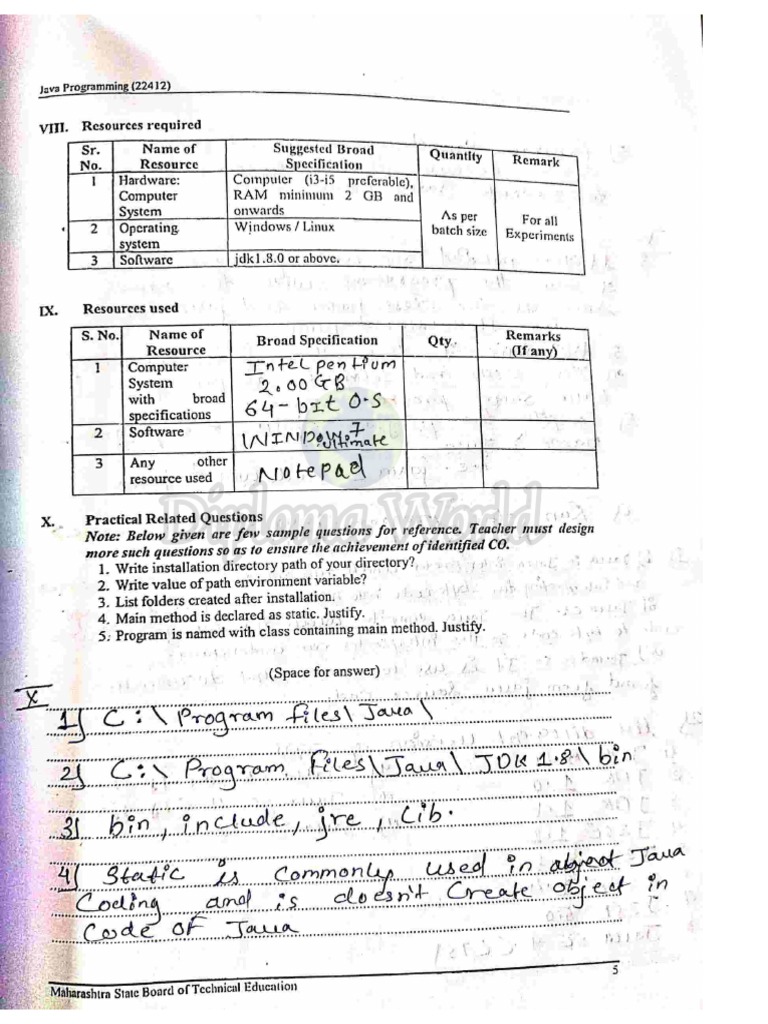 Java Programming (22412)
VIII. Resources required
Sr. No. Name of Resource Suggested Broad Specification Quantity Remark
1 Hardware: Computer System Computer (i3-i5 preferable), RAM minimum 2 GB and onwards As per batch size For all Experiments
2 Operating system Windows / Linux
3 Software jdk1.8.0 or above.
IX. Resources used
S. No. Name of Resource Broad Specification Qty. Remarks (If any)
1 Computer System with broad specifications Intel pentium 2.00 GB 64-bit O.S
2 Software WINDOWS 7 Ultimate
3 Any other resource used Notepad
Diploma World
X. Practical Related Questions
Note: Below given are few sample questions for reference. Teacher must design
more such questions so as to ensure the achievement of identified CO.
1. Write installation directory path of your directory?
2. Write value of path environment variable?
3. List folders created after installation.
4. Main method is declared as static. Justify.
5. Program is named with class containing main method. Justify.
(Space for answer)
X
1) C:\Program files\Java\
2) C:\Program Files\Java\JDK 1.8\bin
3) bin, include, jre, Lib.
4) Static is commonly used in object Java
Coding and is doesn't Create object in
Code of Java
5
Maharashtra State Board of Technical Education